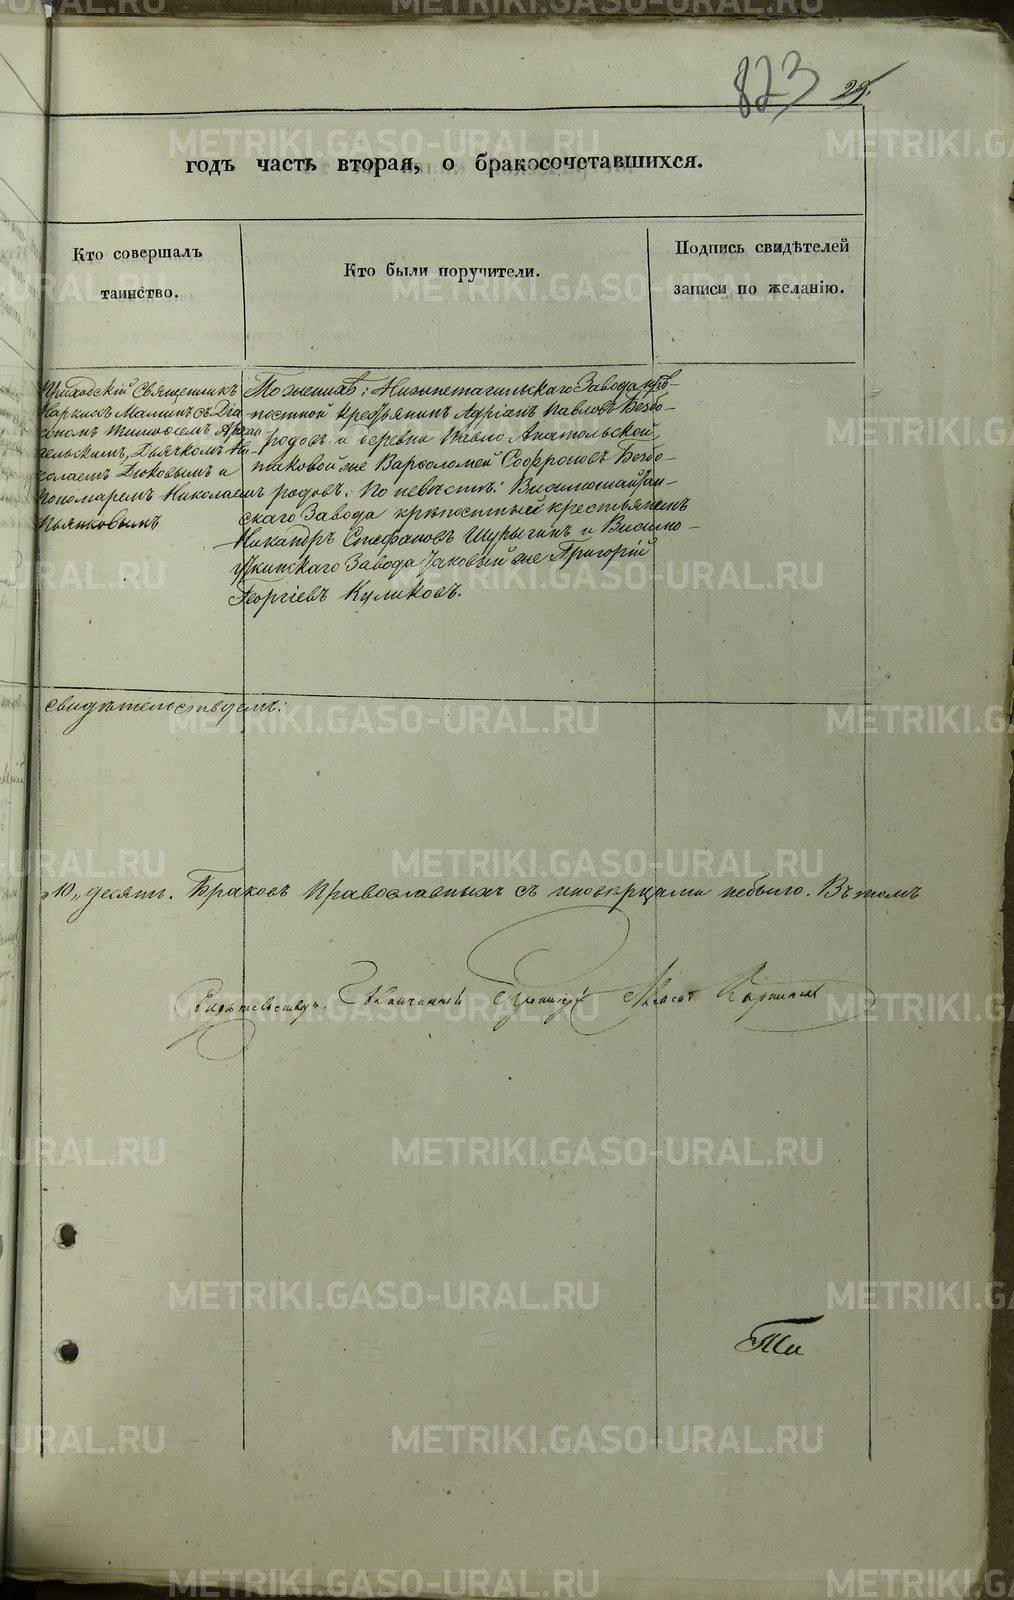 823
29.
годъ часть вторая, о бракосочетавшихся.
Кто совершалъ
таинство.
Кто были поручители.
Подпись свидѣтелей
записи по желанію.
Приходскій Священникъ
Наркисъ Маминъ съ Діа
кономъ Тимоѳеемъ Архан
гельскимъ, Дьячкомъ Ни-
колаемъ Дюковымъ и
Пономаремъ Николаемъ
Пьянковымъ
По женихѣ: Нижнетагильскаго Завода крѣ-
постной крестьянинъ Адріанъ Павловъ Безбо-
родовъ и деревни Анатольской,
таковой же Варѳоломей Софроновъ Безбо-
родовъ. По невѣстѣ: Висимошайтан-
скаго Завода крѣпостный крестьянинъ
Никандръ Стефановъ Шурыгинъ и Висимо-
уткинскаго Завода таковый же Григорій
Георгіевъ Куликовъ.
свидѣтельствуемъ:
„10„ десять. Браковъ Православныхъ съ иновѣрцами небыло. Въ томъ
METRIKI.GASO-URAL.RU